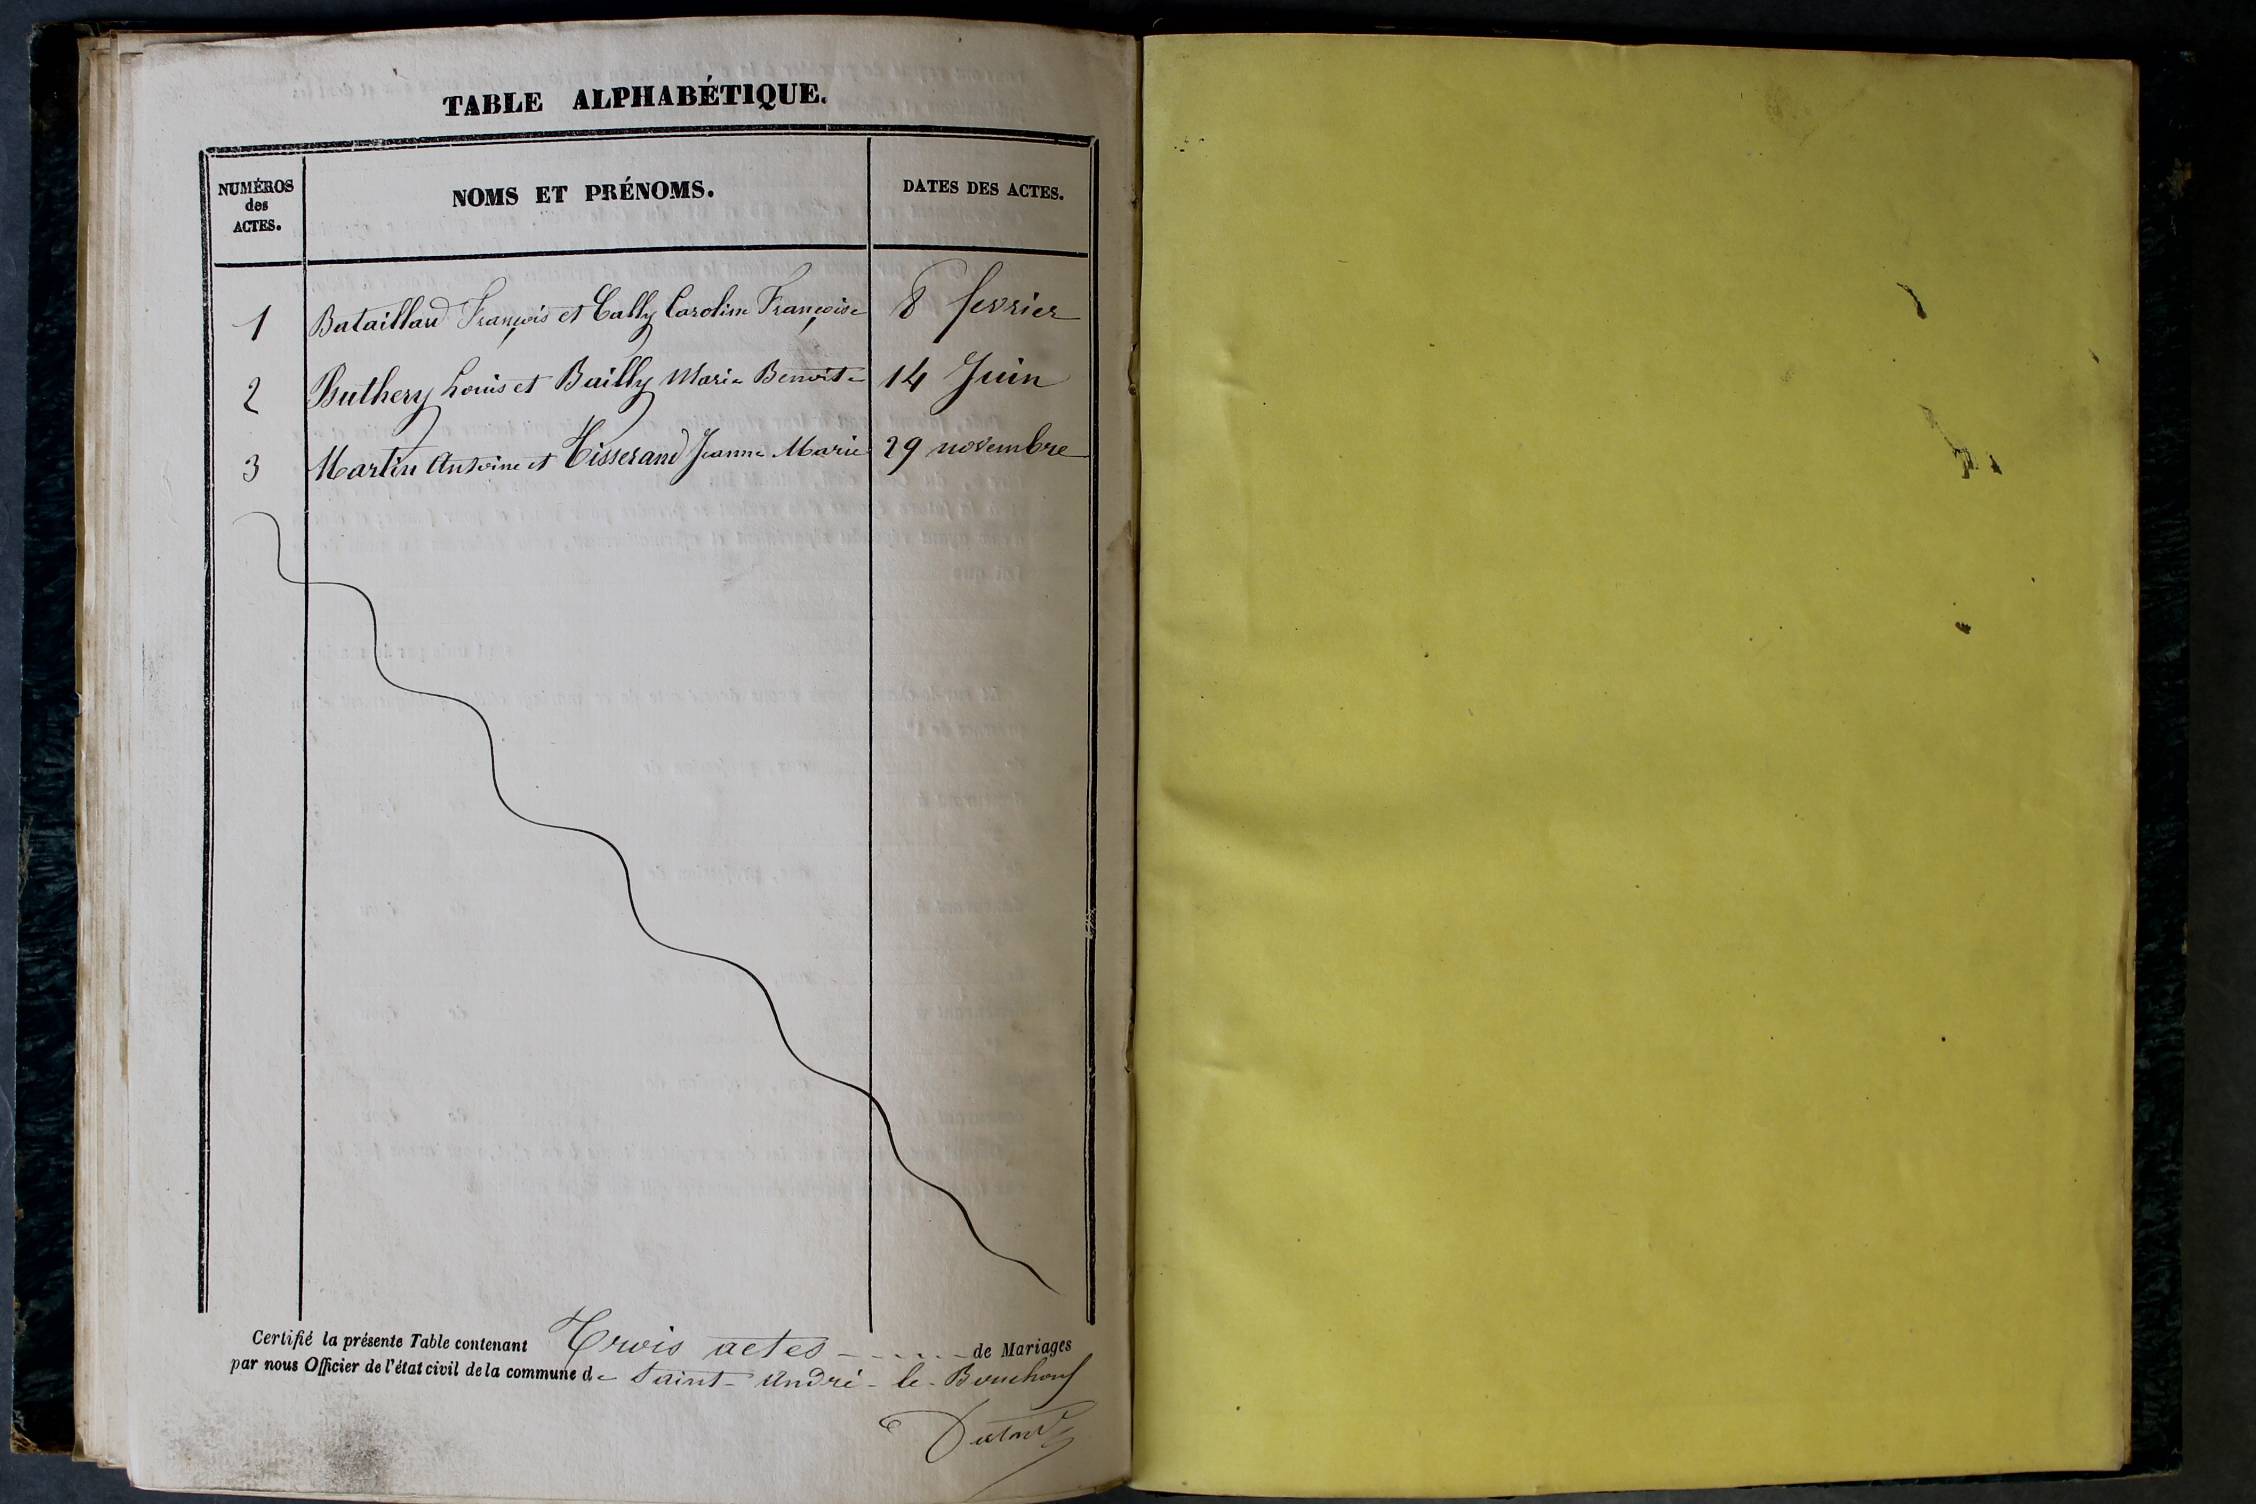 TABLE ALPHABÉTIQUE.
NUMÉROS des ACTES. NOMS ET PRÉNOMS. DATES DES ACTES.
1 Bataillard François et Cally Caroline Françoise 8 fevrier
2 Buthery Louis et Bailly Marie Benoite 14 Juin
3 Martin Antoine et Tisserand Jeanne Marie 29 novembre
Certifié la présente Table contenant Trois actes de Mariages
par nous Officier de l'état civil de la commune de Saint-André-le-Bouchoux